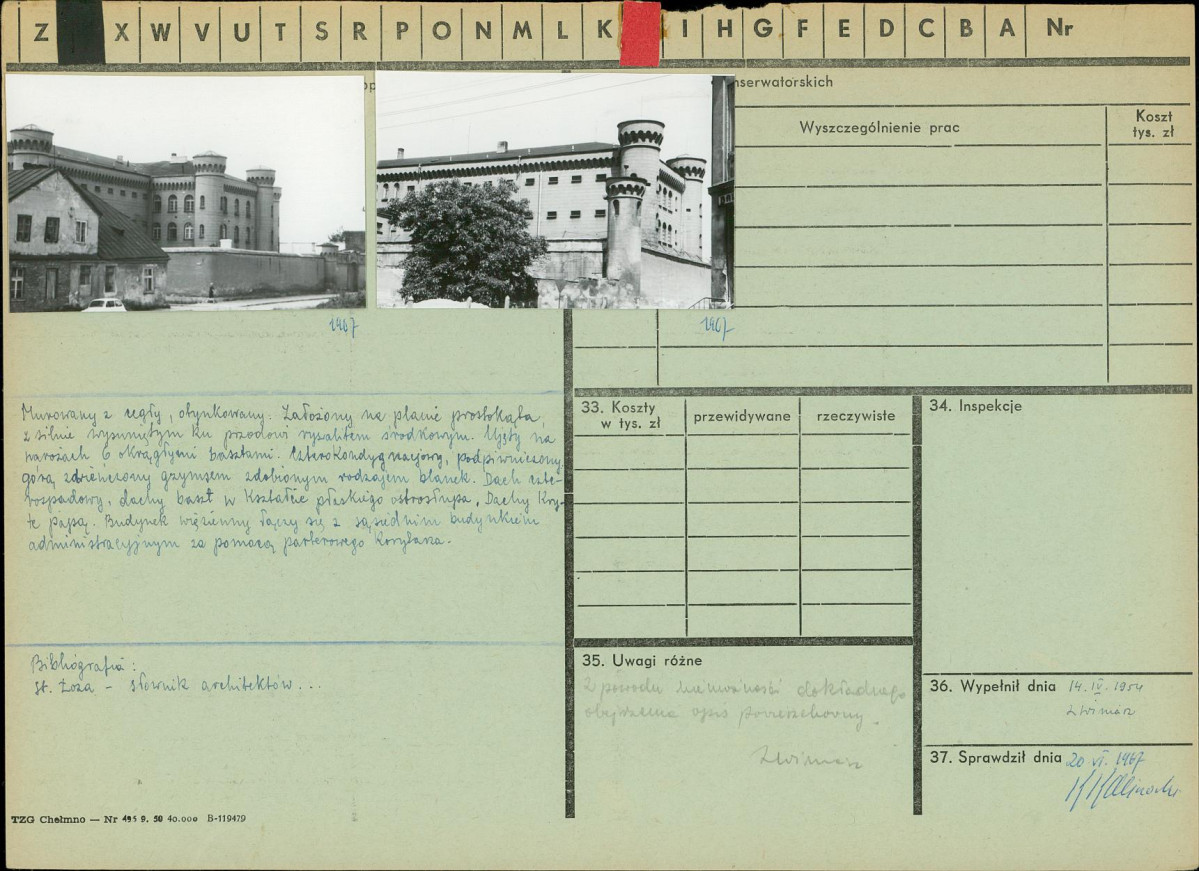 Z X W V U T S R P O N M L K I H G F E D C B A Nr
nserwatorskich
Wyszczególnienie prac
Koszt
tys. zł
1967
1967
Murowany z cegły, otynkowany. Założony na planie prostokąta,
z silnie wysuniętym ku przodowi ryzalitem środkowym. Ujęty na
narożach 6 okrągłymi basztami. Czterokondygnacjowy, podpiwniczony,
górą zwieńczony gzymsem zdobionym rodzajem blanek. Dach czte-
rospadowy, dachy baszt w kształcie płaskiego ostrosłupa. Dachy kry-
te papą. Budynek więzienny łączy się z sąsiednim budynkiem
administracyjnym za pomocą parterowego korytarza.
Bibliografia:
St. Łoza - Słownik architektów...
33. Koszty
w tys. zł
przewidywane
rzeczywiste
34. Inspekcje
35. Uwagi różne
Z powodu niemożności dokładnego
obejrzenia opis powierzchowny.
36. Wypełnił dnia 14.IV.1954
37. Sprawdził dnia 20 VI. 1967
TZG Chełmno — Nr 495 9. 50 40.000 B-119479